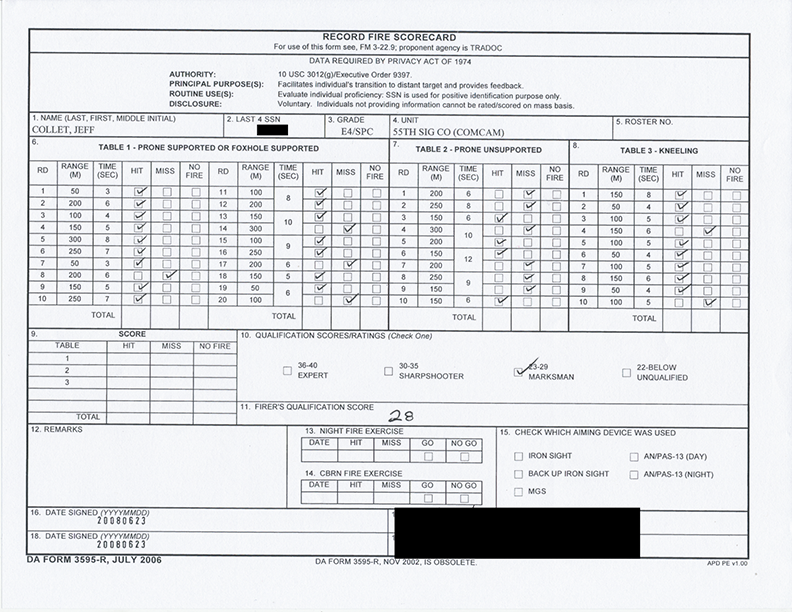 RECORD FIRE SCORECARD
For use of this form see, FM 3-22.9; proponent agency is TRADOC
DATA REQUIRED BY PRIVACY ACT OF 1974
AUTHORITY: 10 USC 3012(g)/Executive Order 9397.
PRINCIPAL PURPOSE(S): Facilitates individual's transition to distant target and provides feedback.
ROUTINE USE(S): Evaluate individual proficiency: SSN is used for positive identification purpose only.
DISCLOSURE: Voluntary. Individuals not providing information cannot be rated/scored on mass basis.
1. NAME (LAST, FIRST, MIDDLE INITIAL) 2. LAST 4 SSN 3. GRADE 4. UNIT 5. ROSTER NO.
COLLET, JEFF E4/SPC 55TH SIG CO (COMCAM)
6. TABLE 1 - PRONE SUPPORTED OR FOXHOLE SUPPORTED
RD RANGE (M) TIME (SEC) HIT MISS NO FIRE RD RANGE (M) TIME (SEC) HIT MISS NO FIRE
1 50 3 ✓ 11 100 8 ✓
2 200 6 ✓ 12 200 ✓
3 100 4 ✓ 13 150 10 ✓
4 150 5 ✓ 14 300 ✓
5 300 8 ✓ 15 100 9 ✓
6 250 7 ✓ 16 250 ✓
7 50 3 ✓ 17 200 6 ✓
8 200 6 ✓ 18 150 5 ✓
9 150 5 ✓ 19 50 6 ✓
10 250 7 ✓ 20 100 ✓
TOTAL TOTAL
7. TABLE 2 - PRONE UNSUPPORTED
RD RANGE (M) TIME (SEC) HIT MISS NO FIRE
1 200 6 ✓
2 250 8 ✓
3 150 6 ✓
4 300 10 ✓
5 200 ✓
6 150 12 ✓
7 200 ✓
8 250 9 ✓
9 150 ✓
10 150 6 ✓
TOTAL
8. TABLE 3 - KNEELING
RD RANGE (M) TIME (SEC) HIT MISS NO FIRE
1 150 8 ✓
2 50 4 ✓
3 100 5 ✓
4 150 6 ✓
5 100 5 ✓
6 50 4 ✓
7 100 5 ✓
8 150 6 ✓
9 50 4 ✓
10 100 5 ✓
TOTAL
9. SCORE
TABLE HIT MISS NO FIRE
1
2
3
TOTAL
10. QUALIFICATION SCORES/RATINGS (Check One)
36-40 EXPERT
30-35 SHARPSHOOTER
✓ 23-29 MARKSMAN
22-BELOW UNQUALIFIED
11. FIRER'S QUALIFICATION SCORE
28
12. REMARKS
13. NIGHT FIRE EXERCISE
DATE HIT MISS GO NO GO
14. CBRN FIRE EXERCISE
DATE HIT MISS GO NO GO
15. CHECK WHICH AIMING DEVICE WAS USED
IRON SIGHT AN/PAS-13 (DAY)
BACK UP IRON SIGHT AN/PAS-13 (NIGHT)
MGS
16. DATE SIGNED (YYYYMMDD)
20080623
18. DATE SIGNED (YYYYMMDD)
20080623
DA FORM 3595-R, JULY 2006 DA FORM 3595-R, NOV 2002, IS OBSOLETE. APD PE v1.00